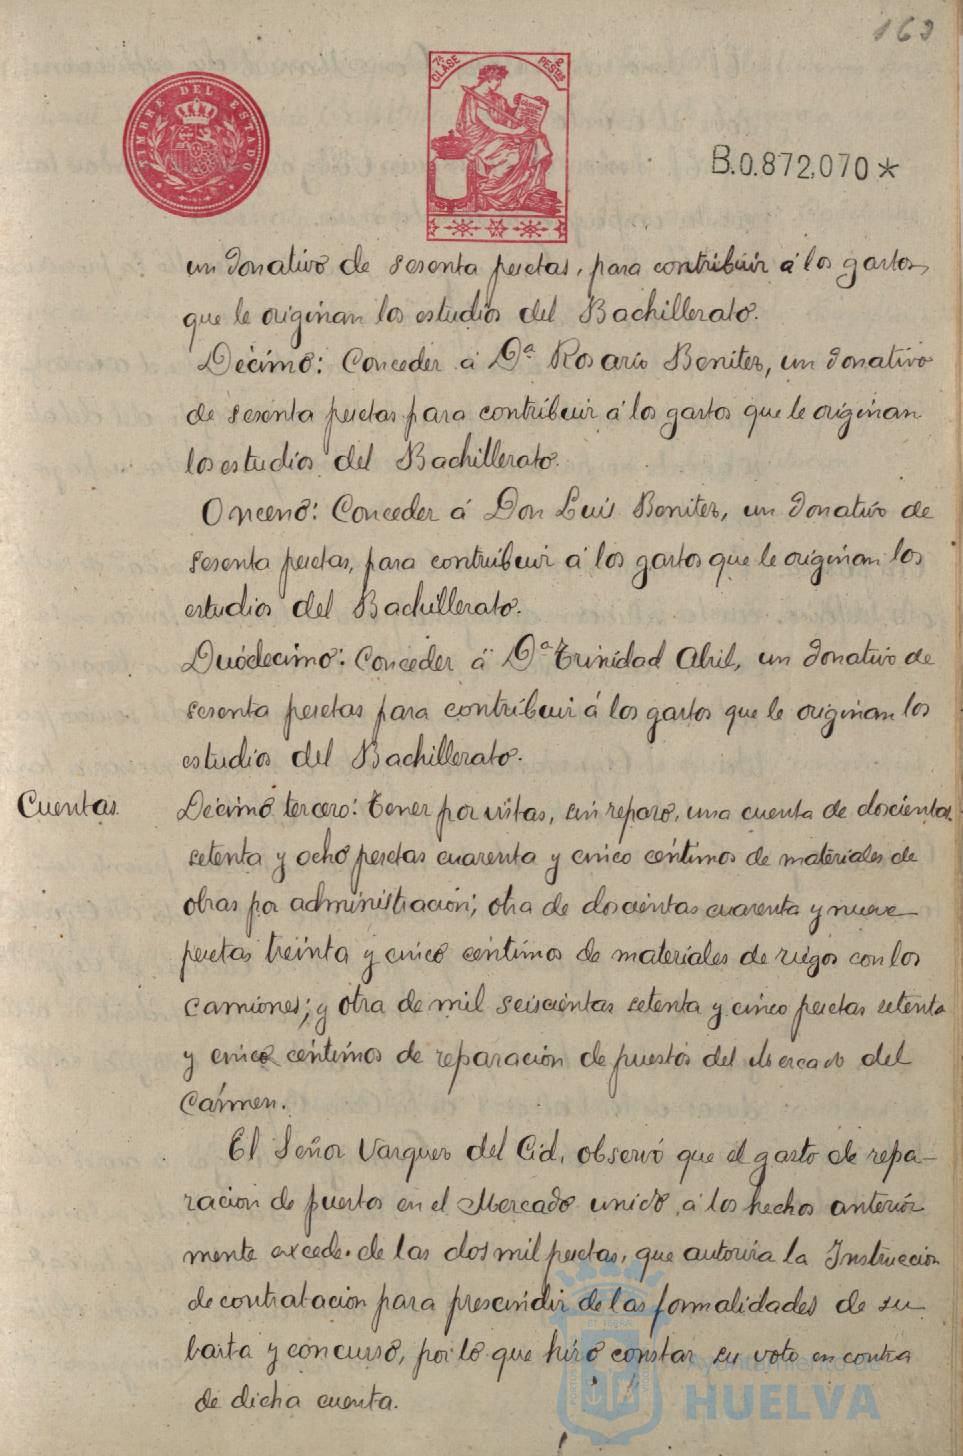 163
TIMBRE DEL ESTADO
7ª CLASE
2 PESTAS
B.0.872,070*
un donativo de sesenta pesetas, para contribuir á los gastos
que le originan los estudios del Bachillerato.
Décimo: Conceder á Dª Rosario Benitez, un donativo
de sesenta pesetas para contribuir á los gastos que le originan
los estudios del Bachillerato.
Onceno: Conceder á Don Luis Benitez, un donativo de
sesenta pesetas, para contribuir á los gastos que le originan los
estudios del Bachillerato.
Duódecimo: Conceder á Dª Trinidad Abril, un donativo de
sesenta pesetas para contribuir á los gastos que le originan los
estudios del Bachillerato.
Cuentas. Décimo tercero: Tener por vistas, sin reparo, una cuenta de doscientas
setenta y ocho pesetas cuarenta y cinco céntimos de materiales de
obras por administración; otra de doscientas cuarenta y nueve
pesetas treinta y cinco centimos de materiales de riegos con los
camiones; y otra de mil seiscientas setenta y cinco pesetas setenta
y cinco céntimos de reparación de puestos del Mercado del
Cármen.
El Señor Vazquez del Cid, observó que el gasto de repa-
racion de puestos en el Mercado unido, á los hechos anterior
mente excede de las dos mil pesetas, que autoriza la Instruccion
de contratacion para prescindir de las formalidades de su
basta y concurso, por lo que hizo constar su voto en contra
de dicha cuenta.
Ayuntamiento de
HUELVA